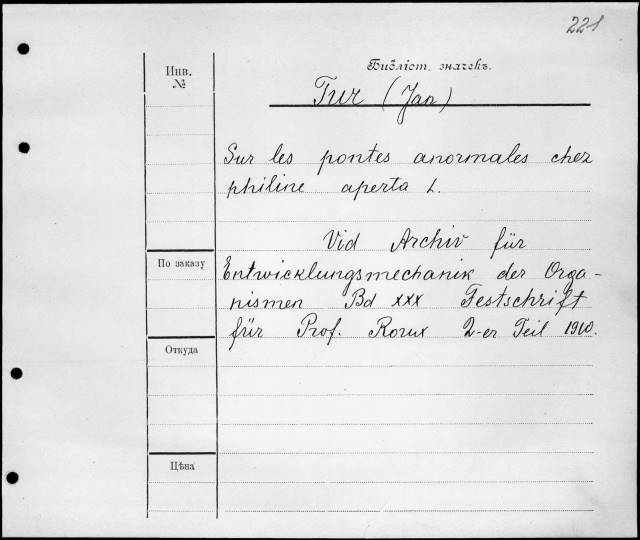 221
Инв.
№
Библіот. значекъ.
Tur (Jan)
Sur les pontes anormales chez
philine aperta L.
Vid Archiv für
По заказу
Entwicklungsmechanik der Orga-
nismen Bd XXX Festschrift
für Prof. Roux 2-er Teil 1910.
Откуда
Цѣна